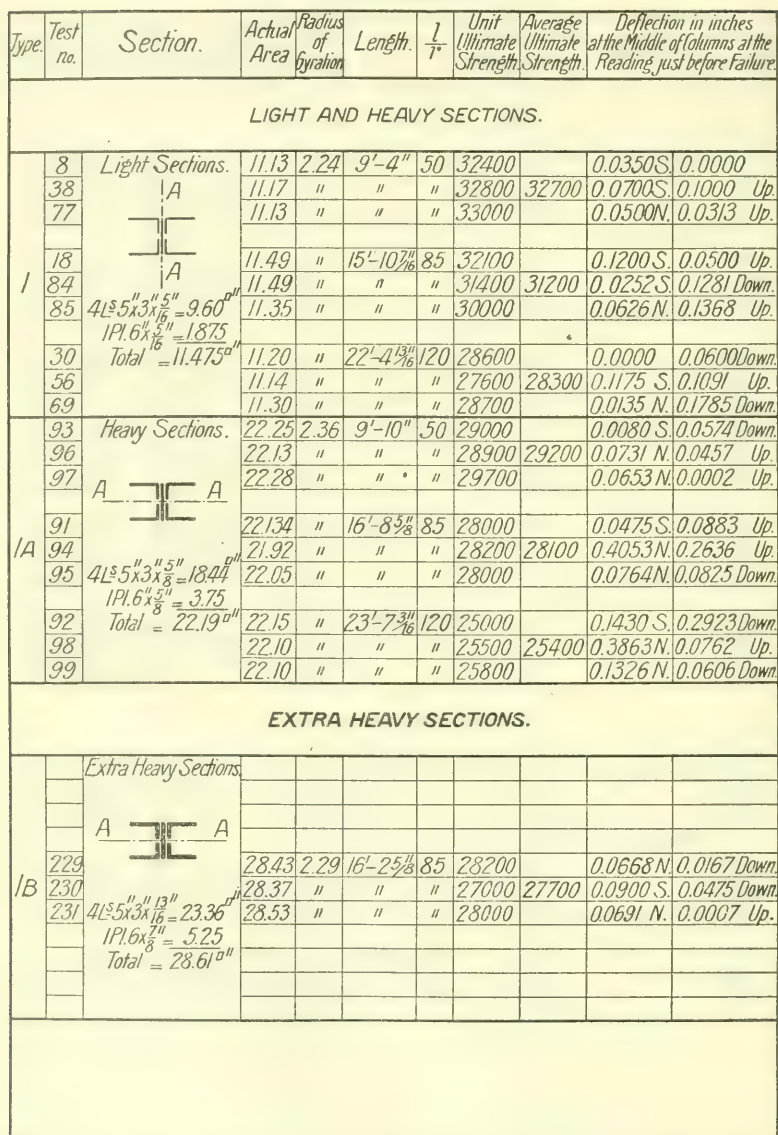 Type. Test no. Section. Actual Area Radius of Gyration Length. l/r Unit Ultimate Strength. Average Ultimate Strength. Deflection in inches at the Middle of Columns at the Reading just before Failure.
LIGHT AND HEAVY SECTIONS.
8 Light Sections. 11.13 2.24 9'-4" 50 32400 0.0350S. 0.0000
38 A 11.17 " " " 32800 32700 0.0700S. 0.1000 Up.
77 11.13 " " " 33000 0.0500N. 0.0313 Up.
18 11.49 " 15'-10 7/16" 85 32100 0.1200 S. 0.0500 Up.
1 84 A 11.49 " " " 31400 31200 0.0252S. 0.1281 Down.
85 4Ls 5"x3"x5/16"=9.60□" 11.35 " " " 30000 0.0626 N. 0.1368 Up.
1Pl.6"x5/16"=1.875
30 Total =11.475□" 11.20 " 22'-4 13/16" 120 28600 0.0000 0.0600Down.
56 11.14 " " " 27600 28300 0.1175 S. 0.1091 Up.
69 11.30 " " " 28700 0.0135 N. 0.1785 Down.
93 Heavy Sections. 22.25 2.36 9'-10" 50 29000 0.0080 S. 0.0574 Down.
96 22.13 " " " 28900 29200 0.0731 N. 0.0457 Up.
97 A A 22.28 " " " 29700 0.0653 N. 0.0002 Up.
91 22.134 " 16'-8 5/8" 85 28000 0.0475 S. 0.0883 Up.
1A 94 21.92 " " " 28200 28100 0.4053 N. 0.2636 Up.
95 4Ls 5"x3"x5/8"=18.44□" 22.05 " " " 28000 0.0764N. 0.0825 Down.
1Pl.6"x5/8"=3.75
92 Total = 22.19□" 22.15 " 23'-7 3/16" 120 25000 0.1430 S. 0.2923Down.
98 22.10 " " " 25500 25400 0.3863 N. 0.0762 Up.
99 22.10 " " " 25800 0.1326 N. 0.0606 Down.
EXTRA HEAVY SECTIONS.
Extra Heavy Sections.
A A
229 28.43 2.29 16'-2 5/8" 85 28200 0.0668N. 0.0167 Down.
1B 230 28.37 " " " 27000 27700 0.0900 S. 0.0475 Down.
231 4Ls 5"x3"x13/16"=23.36□" 28.53 " " " 28000 0.0691 N. 0.0007 Up.
1Pl.6x7/8"= 5.25
Total = 28.61□"